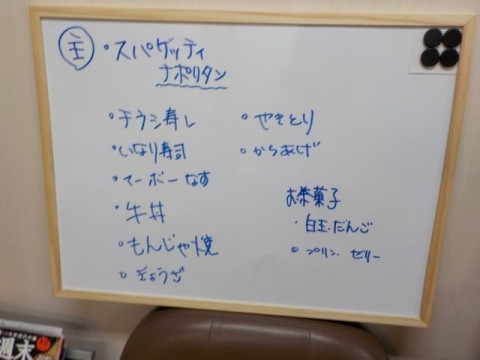 主 ・スパゲッティ
ナポリタン
・チラシ寿し
・いなり寿司
・マーボーなす
・牛丼
・もんじゃ焼
・ぎょうざ
・やきとり
・からあげ
お茶菓子
・白玉だんご
・プリン.ゼリー
週末